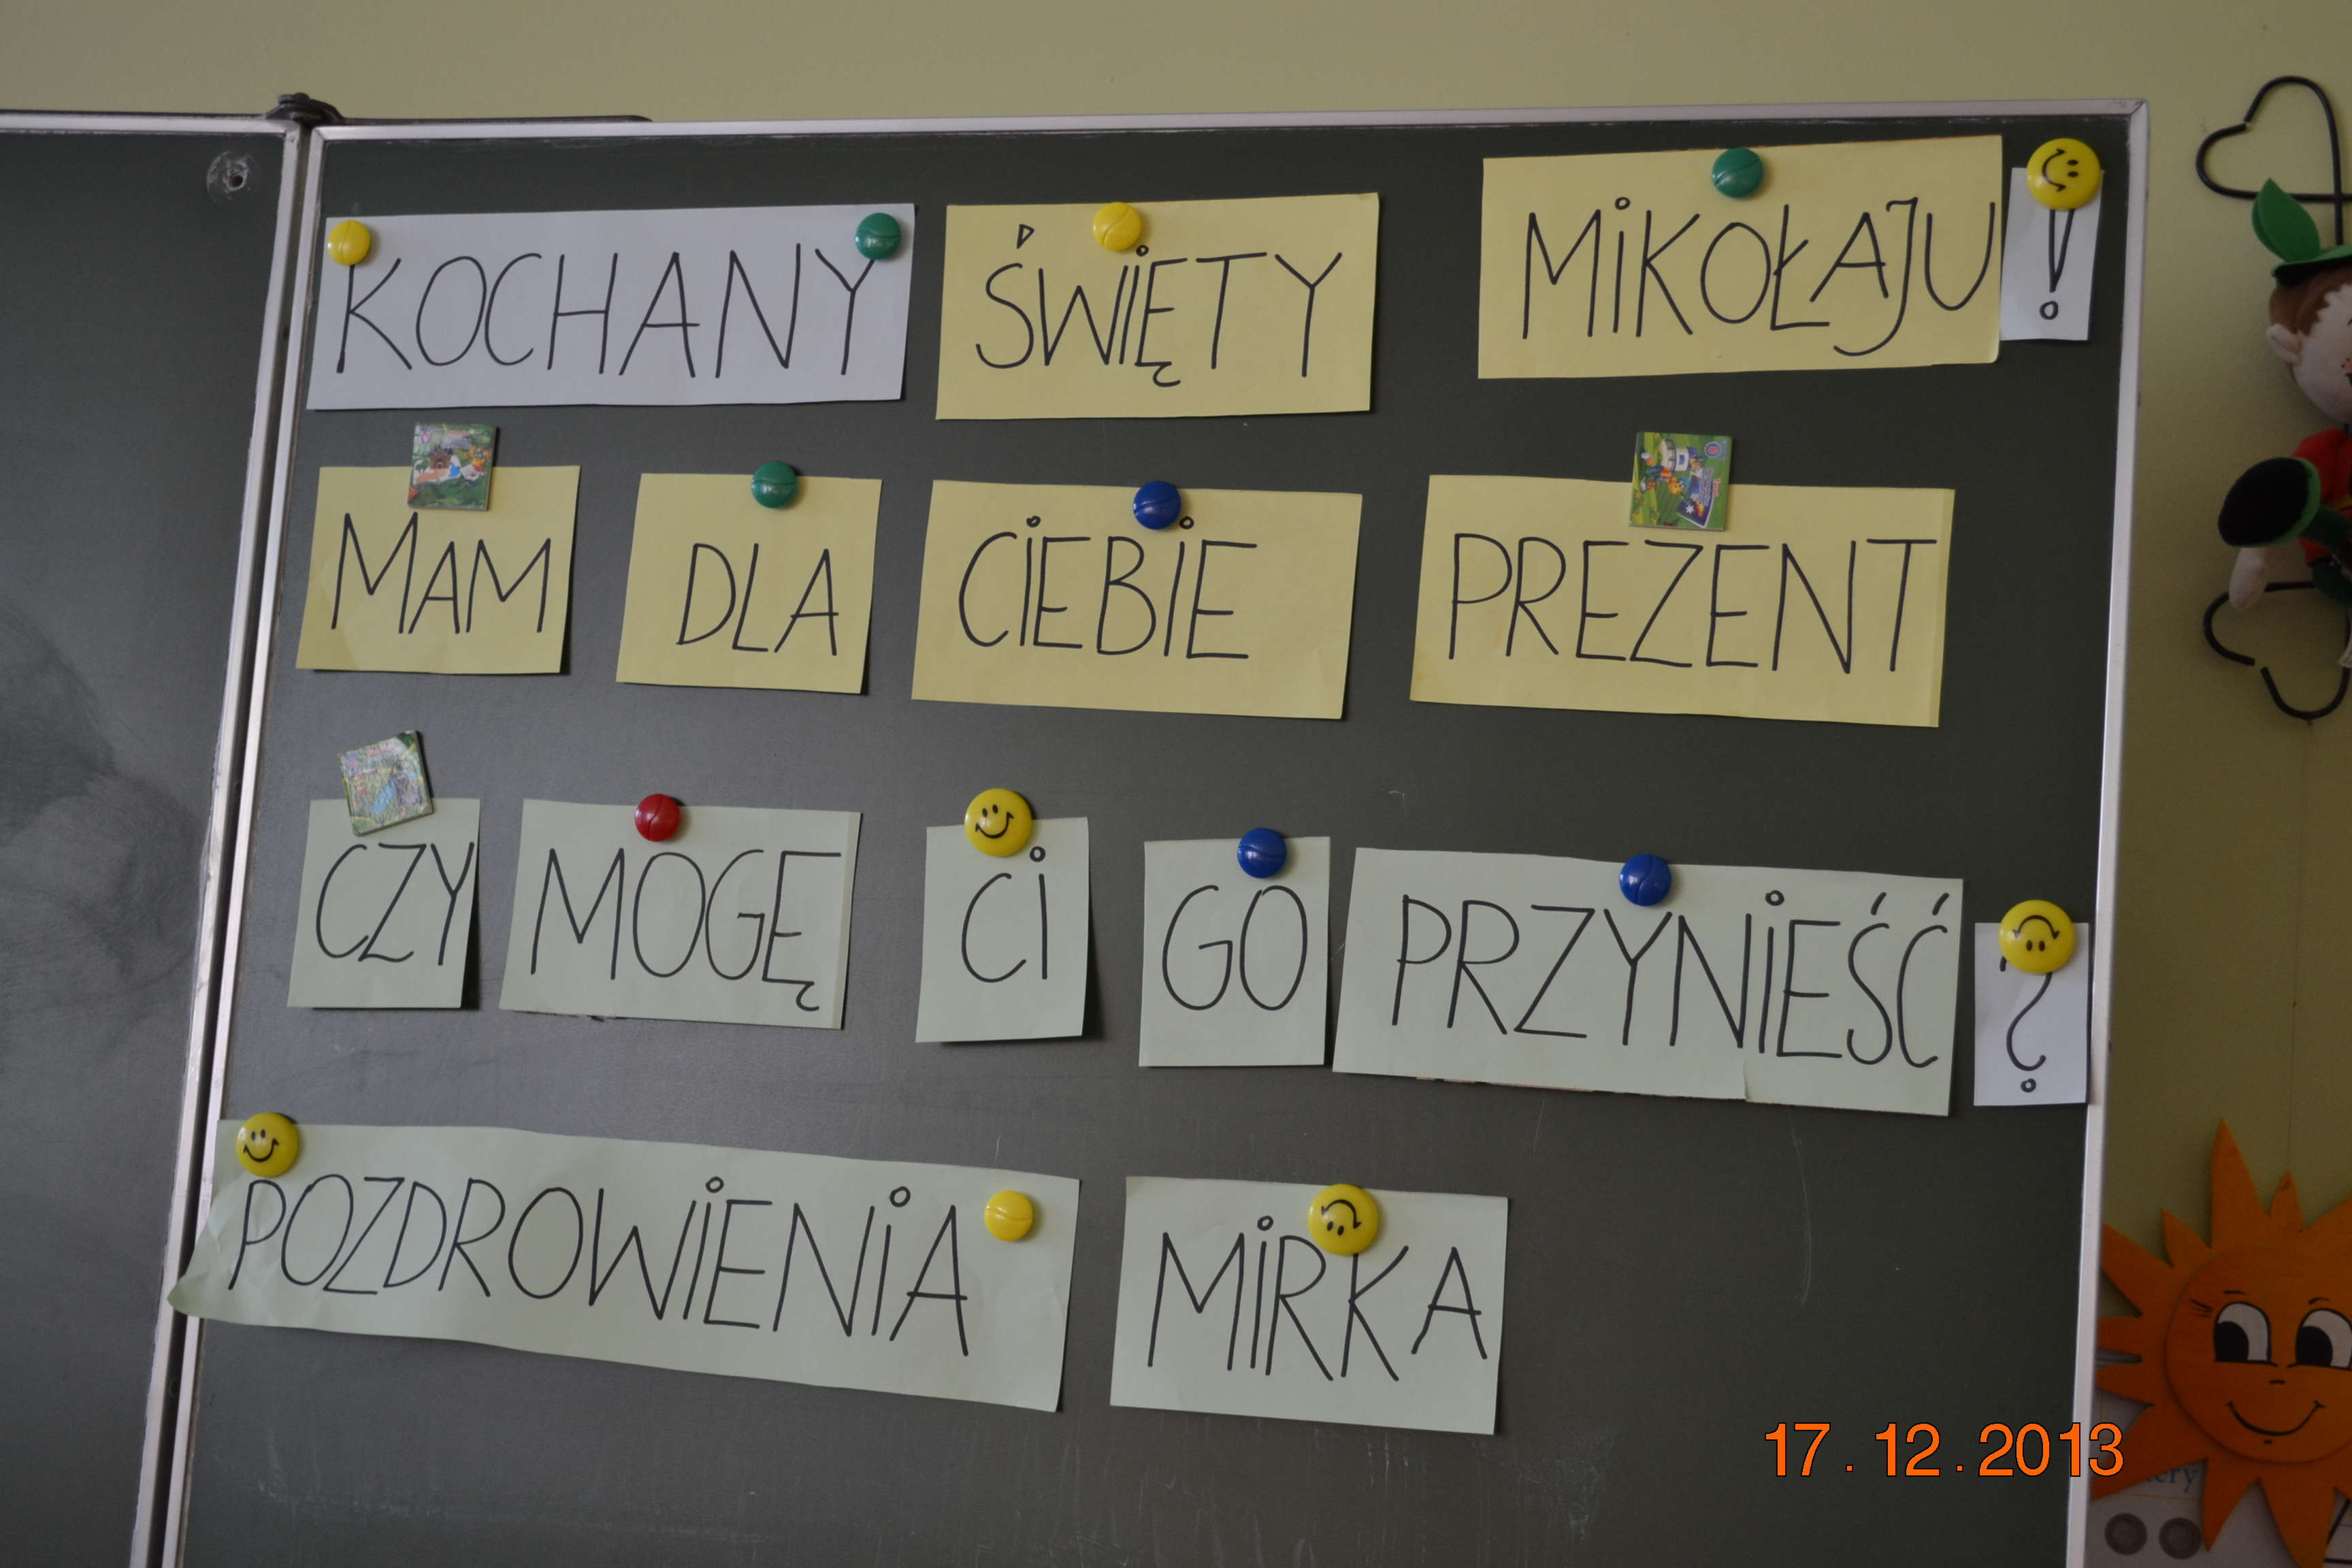 KOCHANY ŚWIĘTY MIKOŁAJU!
MAM DLA CIEBIE PREZENT
CZY MOGĘ CI GO PRZYNIEŚĆ?
POZDROWIENIA MIRKA
17.12.2013